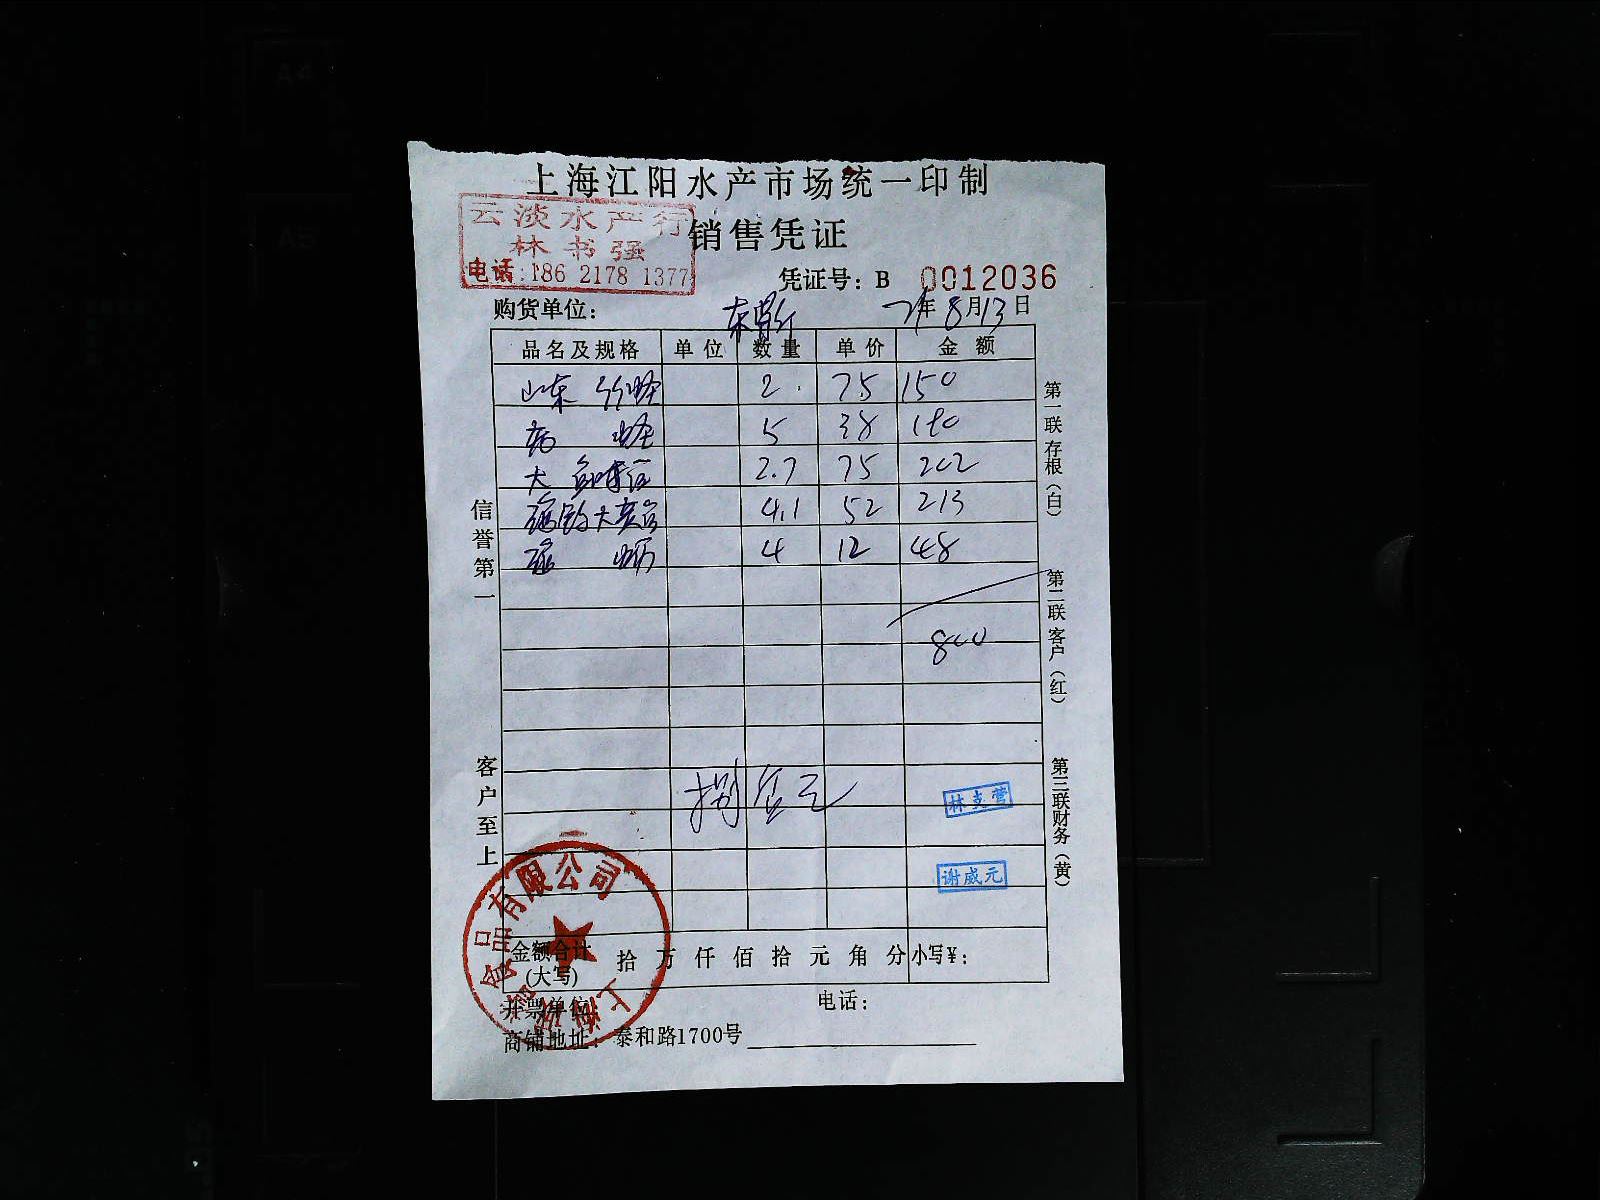 上海江阳水产市场统一印制
云淡水产行
销售凭证
林书强
电话:186 2178 1377
凭证号：B 0012036
购货单位： 21年8月13日
品名及规格 单位 数量 单价 金额
山东 竹蛏 2 75 150
蛏 5 38 190
大 2.7 75 202
4.1 52 213
4 12 48
800
捌佰元
林克营
谢威元
信誉第一
客户至上
第一联存根（白）
第二联客户（红）
第三联财务（黄）
金额合计(大写) 拾万仟佰拾元角分 小写¥：
开票单位： 电话：
商铺地址：泰和路1700号
品有限公司
上海